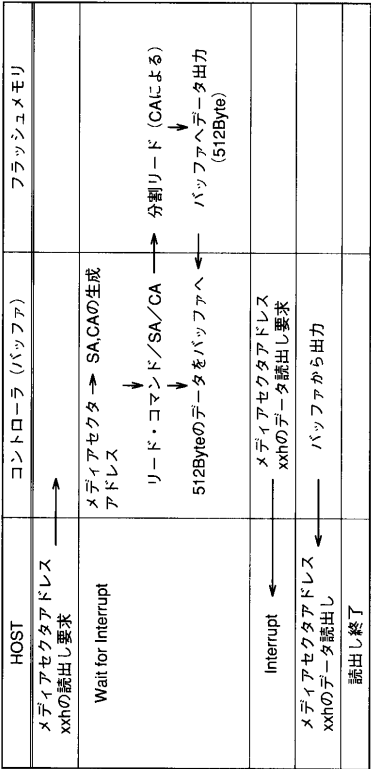 HOST
コントローラ (バッファ)
フラッシュメモリ
メディアセクタアドレス
xxhの読出し要求
Wait for Interrupt
メディアセクタ → SA,CAの生成
アドレス
リード・コマンド/SA/CA
分割リード (CAによる)
512Byteのデータをバッファへ
バッファへデータ出力
(512Byte)
Interrupt
メディアセクタアドレス
xxhのデータ読出し要求
メディアセクタアドレス
xxhのデータ読出し
バッファから出力
読出し終了